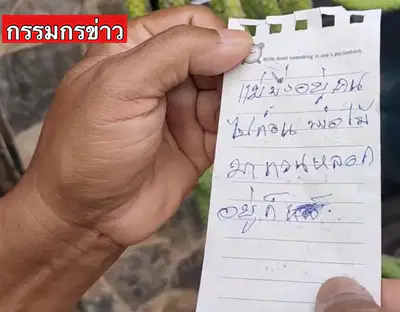 กรรมกรข่าว
Write down something in one's pocketbook
แม่ยังอยู่คน
ไปก่อน พ่อไม้
มา กวนหลอก
อยู่ดี